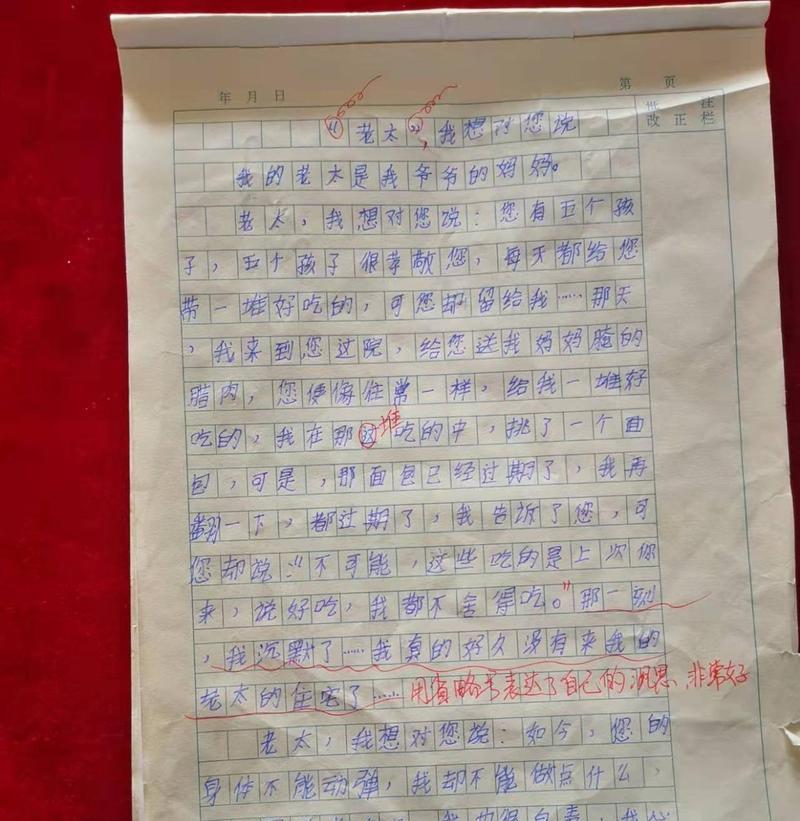 年 月 日
第 页
批 注
改 正 栏
“老太”，我想对您说
我的老太是我爷爷的妈妈。
老太，我想对您说：您有五个孩
子，五个孩子很孝敬您，每天都给您
带一堆好吃的，可您却留给我……那天
，我来到您过院，给您送我妈妈腌的
腊肉，您便像往常一样，给我一堆好
吃的，我在那堆吃的中，挑了一个面
包，可是，那面包已经过期了，我再
翻一下，都过期了，我告诉了您，可
您却说：“不可能，这些吃的是上次你
来，说好吃，我都不舍得吃。”那一刻
，我沉默了……我真的好久没有来我的
老太的住宅了……
用省略号表达了自己的沉思，非常好
老太，我想对您说：如今，您的
身体不能动弹，我却不能做点什么，